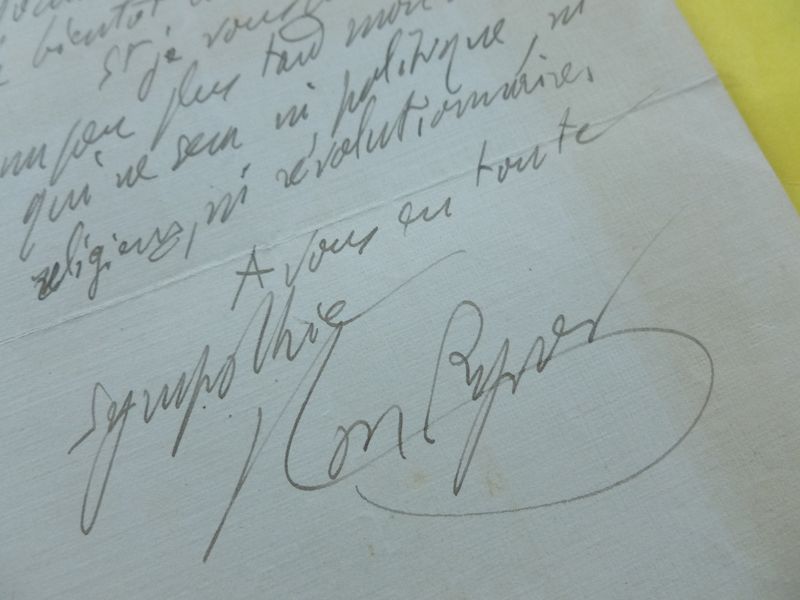 bientôt
et je vous
un peu plus tard mon
qui ne sera ni politique, ni
religieux, ni révolutionnaire.
A vous en toute
sympathie
Han Ryner